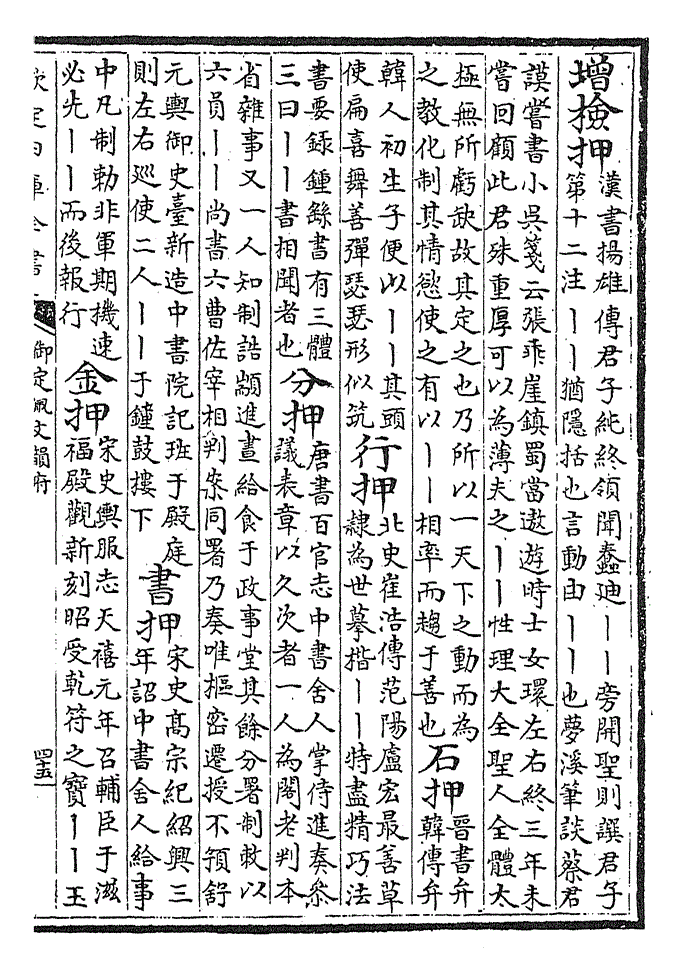 增檢押
漢書揚雄傳君子純終領聞蠢廸丨丨旁開聖則譔君子
第十二注丨丨猶隱括也言動由丨丨也夢溪筆談蔡君
謨嘗書小吳箋云張乖崖鎮蜀當遨遊時士女環左右終三年未
嘗回顧此君殊重厚可以為薄夫之丨丨性理大全聖人全體太
極無所虧缺故其定之也乃所以一天下之動而為
之教化制其情慾使之有以丨丨相率而趨于善也
石押
晉書弁
韓傳弁
韓人初生子便以丨丨其頭
使扁喜舞善彈瑟瑟形似筑
行押
北史崔浩傳范陽盧宏最善草
隷為世摹楷丨丨特盡精巧法
書要録鍾繇書有三體
三曰丨丨書相聞者也
分押
唐書百官志中書舍人掌侍進奏參
議表章以久次者一人為閣老判本
省雜事又一人知制誥顓進畫給食于政事堂其餘分署制敕以
六員丨丨尚書六曹佐宰相判案同署乃奏唯樞密遷授不預舒
元輿御史臺新造中書院記班于殿庭
則左右巡使二人丨丨于鐘鼓樓下
書押
宋史高宗紀紹興三
年詔中書舍人給事
中凡制勅非軍期機速
必先丨丨而後報行
金押
宋史輿服志天禧元年召輔臣于滋
福殿觀新刻昭受乾符之寶丨丨玉
欽定四庫全書
御定佩文韻府
四五